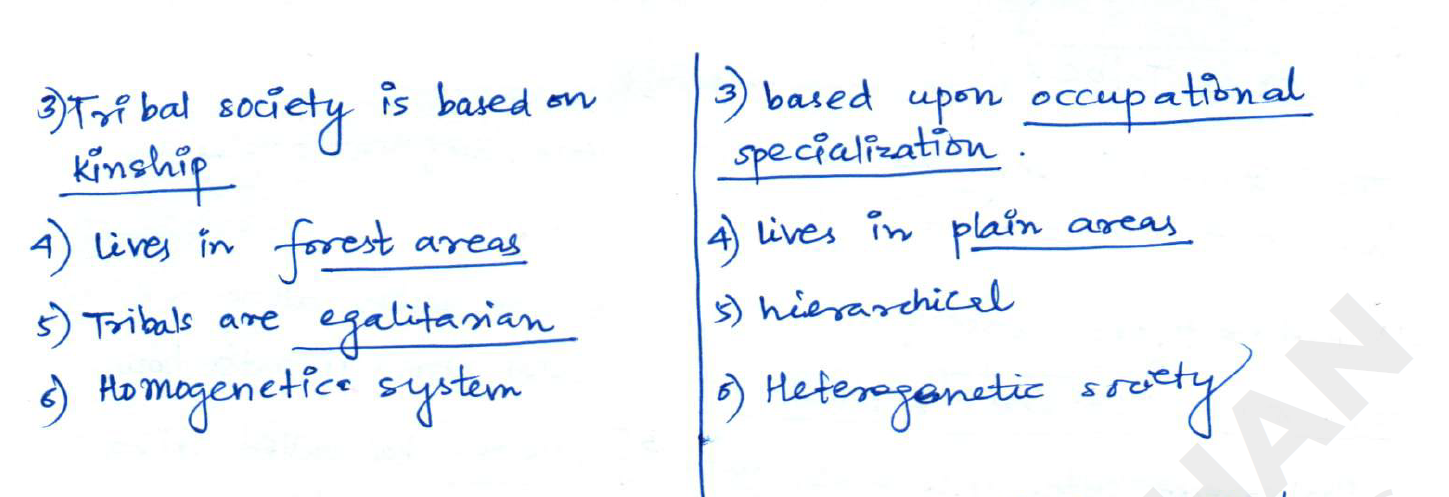 3) Tribal society is based on
kinship
4) lives in forest areas
5) Tribals are egalitarian
6) Homogenetic system
3) based upon occupational
specialization.
4) lives in plain areas
5) hierarchical
6) Heterogenetic society
HAN